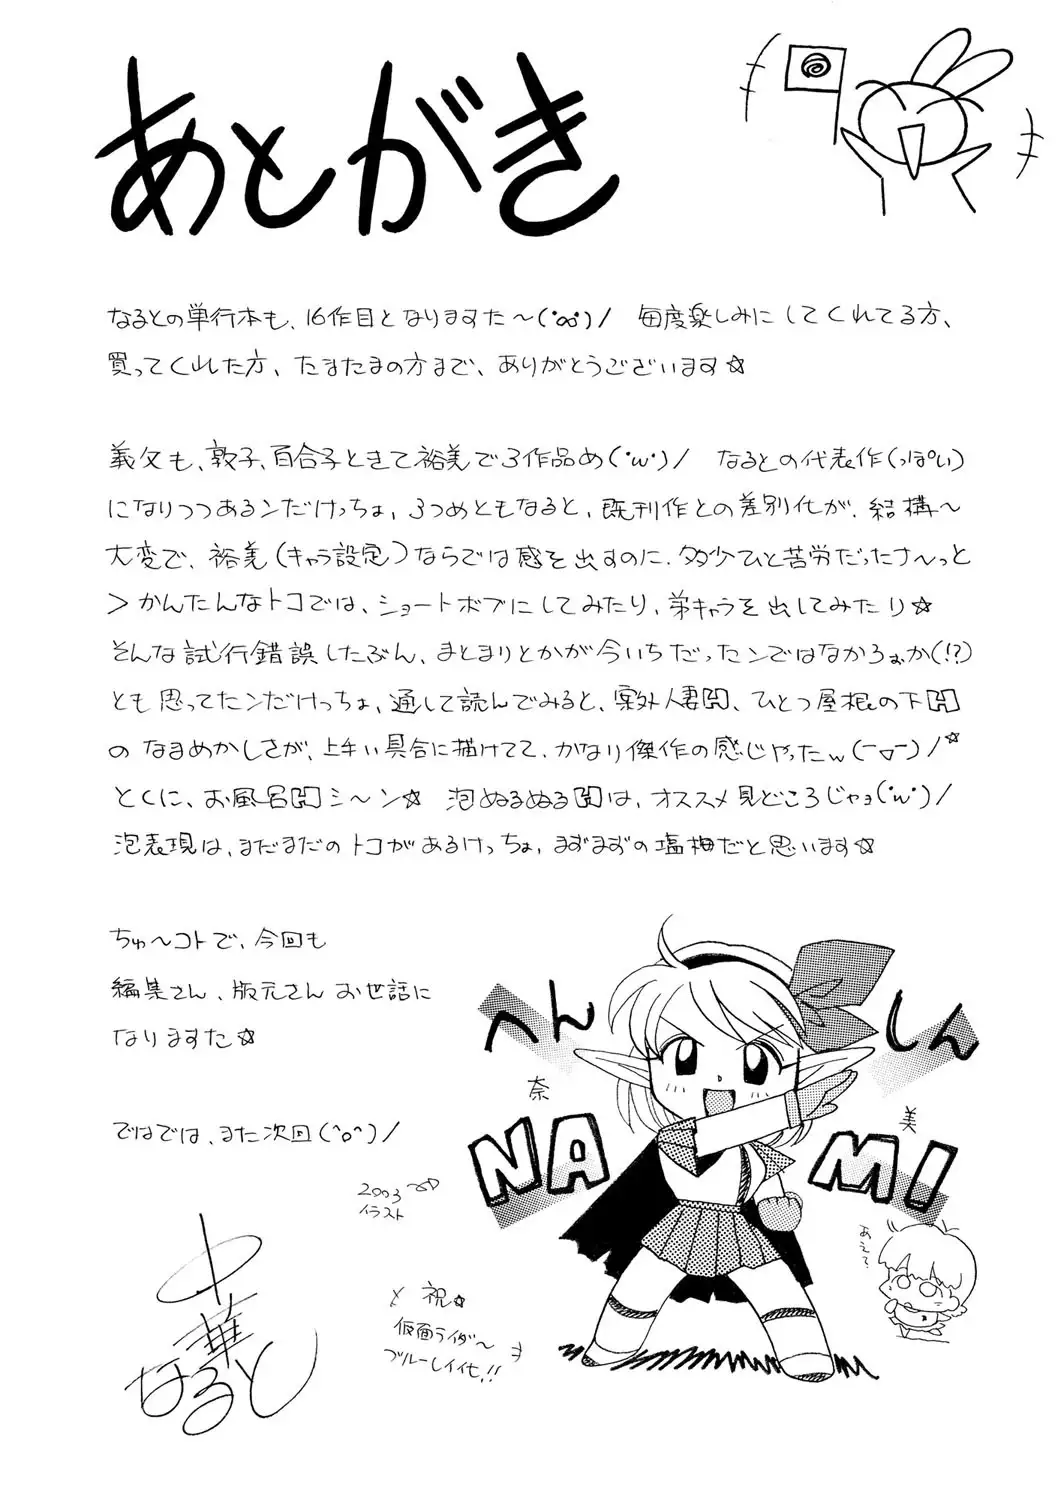 あとがき
なるとの単行本も、16作目となりますた～(･ω･)/ 毎度楽しみにしてくれてる方、
買ってくれた方、たまたまの方まで、ありがとうございます☆
義父も、敦子、百合子ときて裕美で3作品め(･w･)/ なるとの代表作(っぽい)
になりつつあるンだけっちょ、3つめともなると、既刊作との差別化が、結構～
大変で、裕美(キャラ設定)ならでは感を出すのに、多少ひと苦労だったナ～っと
>かんたんなトコでは、ショートボブにしてみたり、弟キャラを出してみたり☆
そんな試行錯誤したぶん、まとまりとかが今いちだったンではなかろぉか(!?)
とも思ってたンだけっちょ、通して読んでみると、案外人妻H、ひとつ屋根の下H
のなまめかしさが、上手い具合に描けてて、かなり傑作の感じやったw(￣▽￣)/☆
とくに、お風呂Hシ～ン☆ 泡ぬるぬるHは、オススメ見どころじゃョ('w')/
泡表現は、まだまだのトコがあるけっちょ、まずまずの塩梅だと思います☆
ちゅ～コトで、今回も
編集さん、版元さんお世話に
なりますた☆
ではでは、また次回(^o^)/
へんしん
奈美
NAMI
2003
イラスト
あえて?
と 祝☆
仮面ライダ～
ブルーレイ化!!
中華
なると